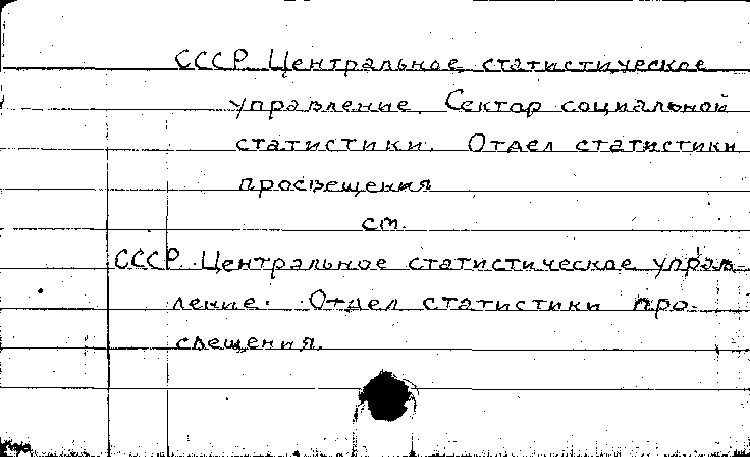 СССР Центральное статистическое
управление. Сектор социальной
статистики. Отдел статистики
просвещения
см.
СССР. Центральное статистическое управ
ление. Отдел статистики про-
свещения.